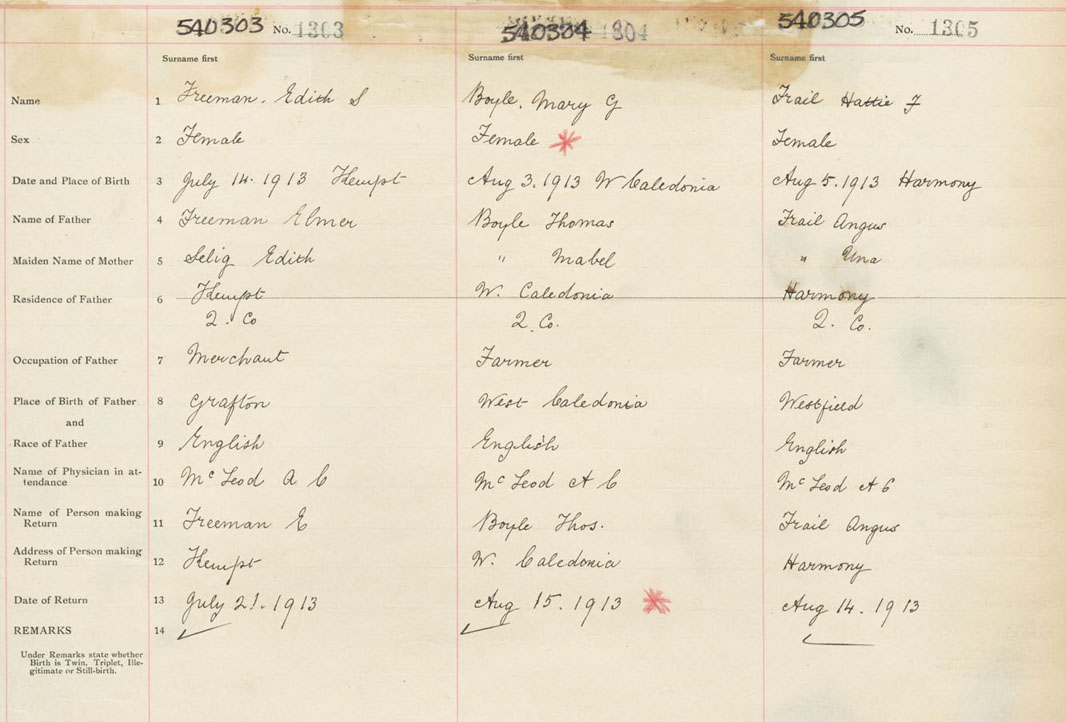 540303 No. 1303 540304 1304 540305 No. 1305
Surname first Surname first Surname first
Name 1 Freeman. Edith S Boyle, Mary G Frail Hattie F
Sex 2 Female Female Female
Date and Place of Birth 3 July 14. 1913 Kempt Aug 3. 1913 W Caledonia Aug 5. 1913 Harmony
Name of Father 4 Freeman Elmer Boyle Thomas Frail Angus
Maiden Name of Mother 5 Selig Edith " Mabel " Una
Residence of Father 6 Kempt W. Caledonia Harmony
Q. Co Q. Co. Q. Co.
Occupation of Father 7 Merchant Farmer Farmer
Place of Birth of Father 8 Grafton West Caledonia Westfield
and
Race of Father 9 English English English
Name of Physician in at-
tendance 10 McLeod A C McLeod A C McLeod A C
Name of Person making
Return 11 Freeman E Boyle Thos. Frail Angus
Address of Person making
Return 12 Kempt W. Caledonia Harmony
Date of Return 13 July 21. 1913 Aug 15. 1913 Aug 14. 1913
REMARKS 14
Under Remarks state whether
Birth is Twin, Triplet, Ille-
gitimate or Still-birth.